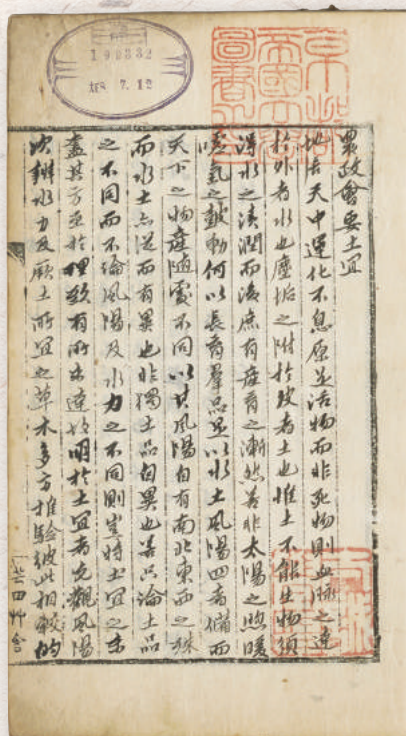 農政會要土宜
地居天中運化不息原是活物而非死物則血脉之達
於外者水也塵垢之附於皮者土也惟土不能生物須
得水之漬潤而後庶有産育之漸然若非太陽之照暖
噯氣之鼓動何以長育羣品是以水土風陽四者備而
天下之物産隨處不同以其風陽自有南北東西之殊
而水土亦從而有異也非獨土品自異也若只論土品
之不同而不論風陽及水力之不同則豈特土宜之未
盡其方至於種藝有所未達故明於土宜者先觀風陽
次辨水力及厥土所宜之草木多方推驗彼此相較的
芸田艸舍
京城帝國大學圖書章
7. 12